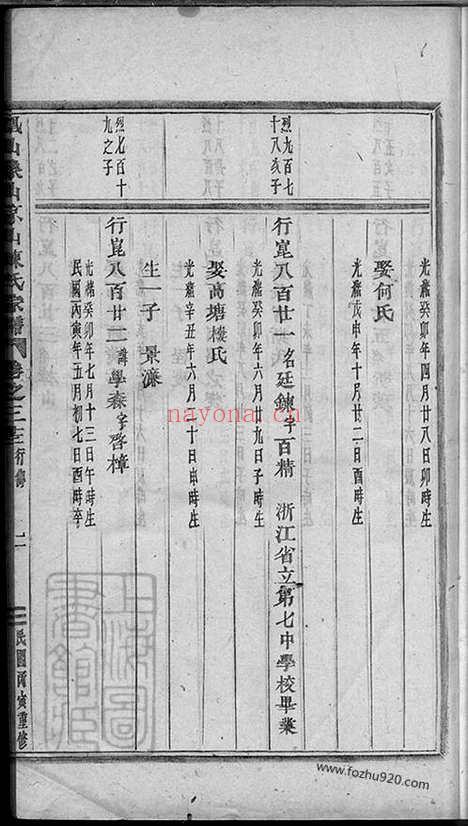 光緒癸卯年四月廿八日卯時生
娶何氏
光緒戊申年十月廿二日酉時生
烈九百七
十八長子
行崑八百廿一 名廷鍊字百精 浙江省立第七中學校畢業
光緒癸卯年六月廿九日子時生
娶高塘樓氏
光緒辛丑年六月二十日申時生
生一子 景濂
烈七百十
九之子
行崑八百廿二 諱學森字啓樟
光緒癸卯年七月十三日午時生
民國丙寅年五月初七日酉時卒
山陳氏宗譜 卷之三十三 行傳
民國丙寅重修
上海圖書館藏
nayona.cn
www.fozhu920.com